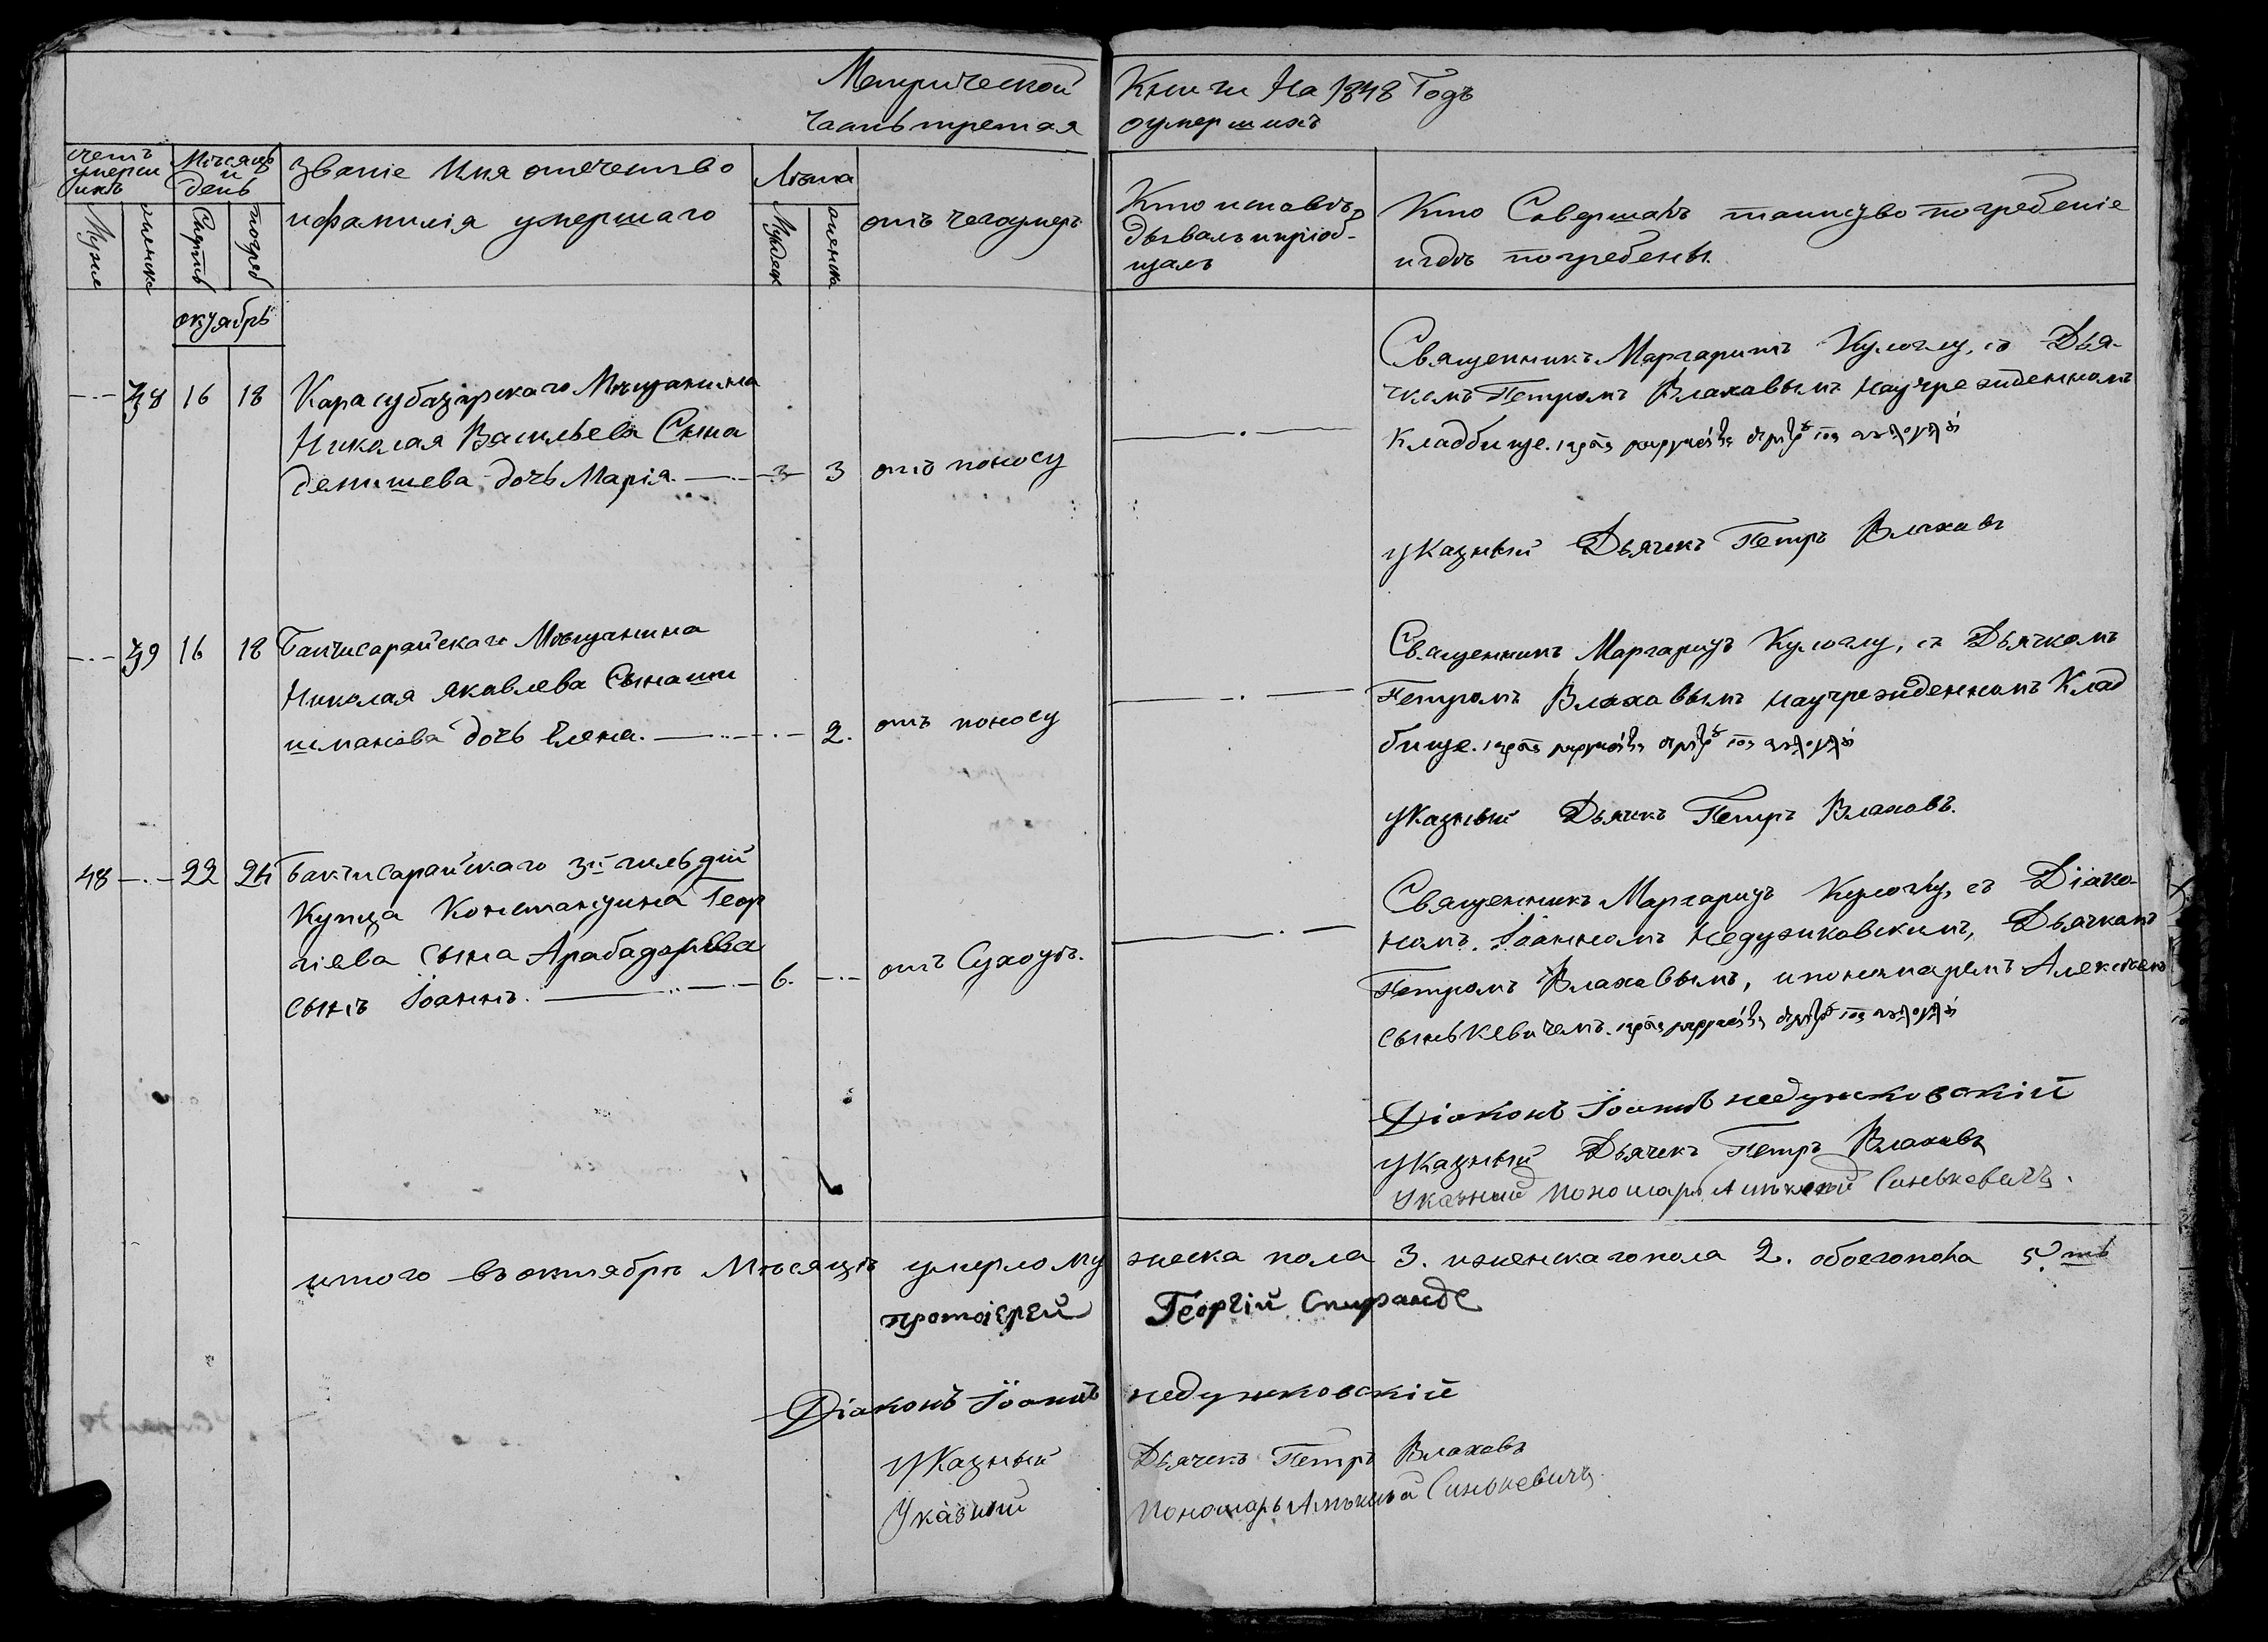 Метрической Книги На 1848 Годъ
часть третая оумершихъ
счетъ умерш ихъ
Мѣсяцъ и день
Званіе Имя отечество
и фамилія умершаго
Лѣта
отъ чего умеръ
Кто исповѣ-
дывалъ и пріоб-
щалъ
Кто Совершалъ таинство погребеніе
и гдѣ погребены.
Муже
женске
Смерть
погреб
Мужеск
женска
октябрь
38 16 18
Карасубазарскаго Мѣщанина
Николая Васильева Сына
демишева дочь Марія. 3 отъ поносу
Священникъ Маргаритъ Кулоглу, съ Дья-
чкомъ Петромъ Влаховымъ научрежденномъ
кладбище.
указный Дьячекъ Петръ Влаховъ
39 16 18
Бахчисарайскаго Мѣщанина
Николая Яковлева Сына ши
шманова дочь Елена. 2. отъ поносу
Священникъ Маргаритъ Кулоглу, съ Дьячкомъ
Петромъ Влаховымъ научрежденномъ Клад
бище.
указный Дьячекъ Петръ Влаховъ.
48 22 24
Бахчисарайскаго 3й гильдій
Купца Константина Геор
гіева сына Арабаджіева
сынъ Іоаннъ. 6. отъ Сухотъ.
Священникъ Маргаритъ Кулоглу, съ Діако-
номъ Іоанномъ Недужковскимъ, Дьячкомъ
Петромъ Влаховымъ, и пономаремъ Алексѣемъ
сынькевичемъ.
Діаконъ Іоаннъ недужковскій
указный Дьячекъ Петръ Влаховъ
Указный Пономарь Алексѣй Синькевичъ.
итого въ октябрѣ Мѣсяцѣ умерло му жеска пола 3. и женскаго пола 2. обоего пола 5.ть
протоіерей Георгій Спиранде
Діаконъ Іоаннъ недужковскій
указный Дьячекъ Петръ Влаховъ
Указный Пономарь Алексѣй Синькевичъ.